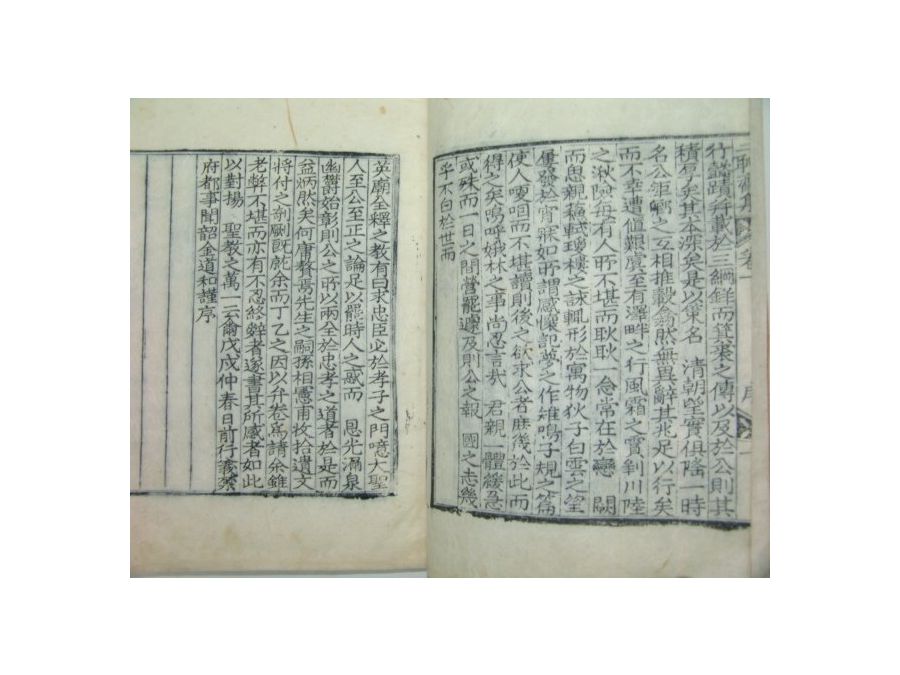 行誼蹟幷載於三綱錄而箕裘之傳以及於公則其
積累矣其本深矣是以策名 清朝望實俱隆一時
名公鉅卿之互相推轂翕然無異辭其兆足以行矣
而不幸遭値艱虞至有澤畔之行風霜之實到川陸
之湫阨每有人所不堪而耿耿一念常在於戀 闕
而思親蘓軾瓊樓之詠輒形於寓物狄子白雲之望
屢發於宵寐如所謂感懷記夢之作維鳴子規之篇
使人哽咽而不堪讀則後之欲求公者庶幾於此而
得之矣嗚呼娥林之事尚忍言㢤 君親一體緩急
或殊而一日之間營罷遽及則公之報 國之志幾
乎不白於世而
英廟全釋之敎有曰求忠臣必於孝子之門噫大聖
人至公至正之論足以罷時人之惑而 恩光漏泉
幽欝始彰則公之所以兩全於忠孝之道者於是而
益炳然矣何庸贅焉先生之嗣孫相憲甫收拾遺文
將付之剞劂旣訖余而丁乙之因以弁卷爲請余雖
老弊不堪而亦有不忍終辭者遂書其所感者如此
以對揚 聖敎之萬一云爾戊戌仲春日前行義禁
府都事聞韶金道和謹序
序
一